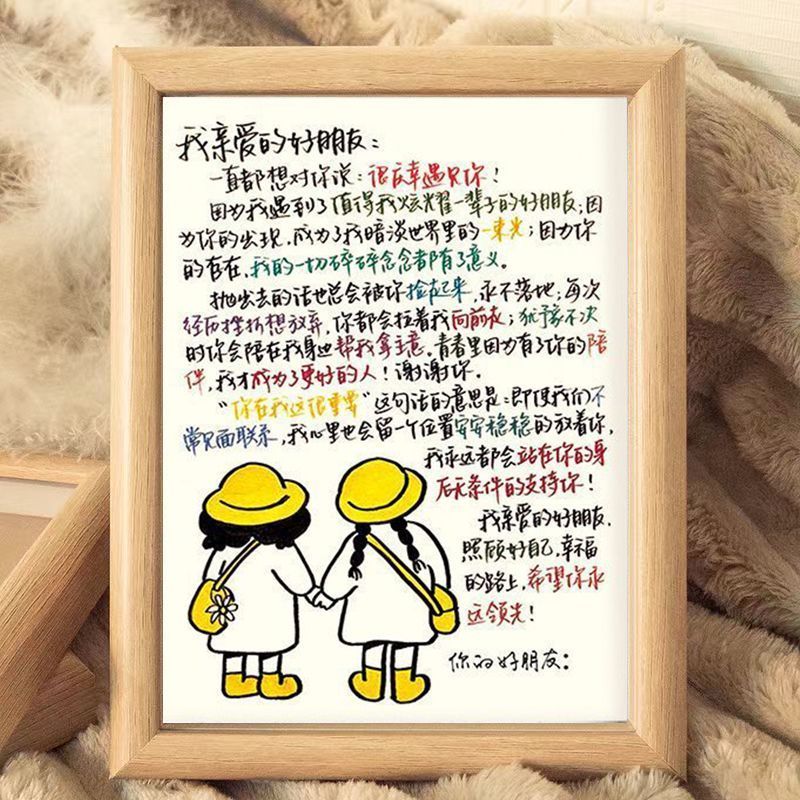 我亲爱的好朋友：
一直都想对你说：很庆幸遇见你！
因为我遇到了值得我炫耀一辈子的好朋友；因
为你的出现，成为了我暗淡世界里的一束光；因为你
的存在，我的一切碎碎念念都有了意义。
抛出去的话也总会被你捡起来，永不落地；每次
经历挫折想放弃，你都会拉着我向前走；犹豫不决
时你会陪在我身边帮我拿主意。青春里因为有了你的陪
伴，我才成为了更好的人！谢谢你。
“你在我这很重要”这句话的意思是：即使我们不
常见面联系，我心里也会留一个位置安安稳稳的放着你，
我永远都会站在你的身
后无条件的支持你！
我亲爱的好朋友，
照顾好自己，幸福
的路上，希望你永
远领先！
你的好朋友：